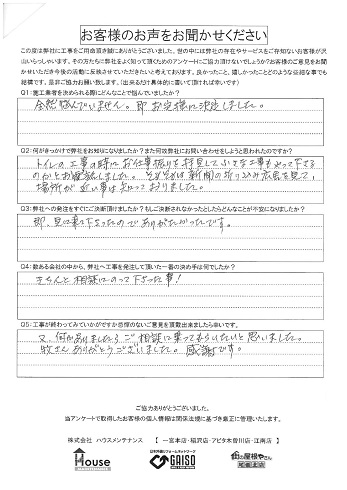 お客様のお声をお聞かせください
この度は弊社に工事をご用命頂き誠にありがとうございました。世の中には弊社の存在やサービスをご存知ないお客様が沢
山いらっしゃいます。その方たちに弊社をよく知って頂くためのアンケートにご協力頂けないでしょうか？お客様のご意見をお聞
かせいただき今後の活動に反映させていただきたいと考えております。良かったこと、嬉しかったことどのような些細な事でも
結構です。是非ご協力お願い致します。（出来るだけ具体的に書いて頂けると嬉しいです）
Q1：施工業者を決められる際にどんなことで悩んでいましたか？
全然悩んでいません。即、お宅様に決定しました。
Q2：何がきっかけで弊社をお知りになりましたか？また何故弊社にお問い合わせをしようと思われたのですか？
トイレの工事の時にお仕事振りを拝見していろんな事もやって下さる
のかとお電話しました。そもそもは新聞の折り込み広告を見て、
場所が近い事は知っておりました。
Q3：弊社への発注をすぐにご決断頂けましたか？もしご決断されなかったとしたらどんなことが不安になりましたか？
即、見に来て下さったのでありがたかったです。
Q4：数ある会社の中から、弊社へ工事を発注して頂いた一番の決め手は何でしたか？
きちんと相談にのって下さった事！
Q5：工事が終わってみていかがですか忌憚のないご意見を頂戴出来ましたら幸いです。
又、何かありましたらご相談に乗ってもらいたいと思いました。
牧さんありがとうございました。感謝です。
ご協力ありがとうございました。
当アンケートで取得したお客様の個人情報は関係法規に基づき厳正に管理いたします。
株式会社 ハウスメンテナンス 【 一宮本店・稲沢店・アピタ木曽川店・江南店 】
House
GAISO
街の屋根やさん